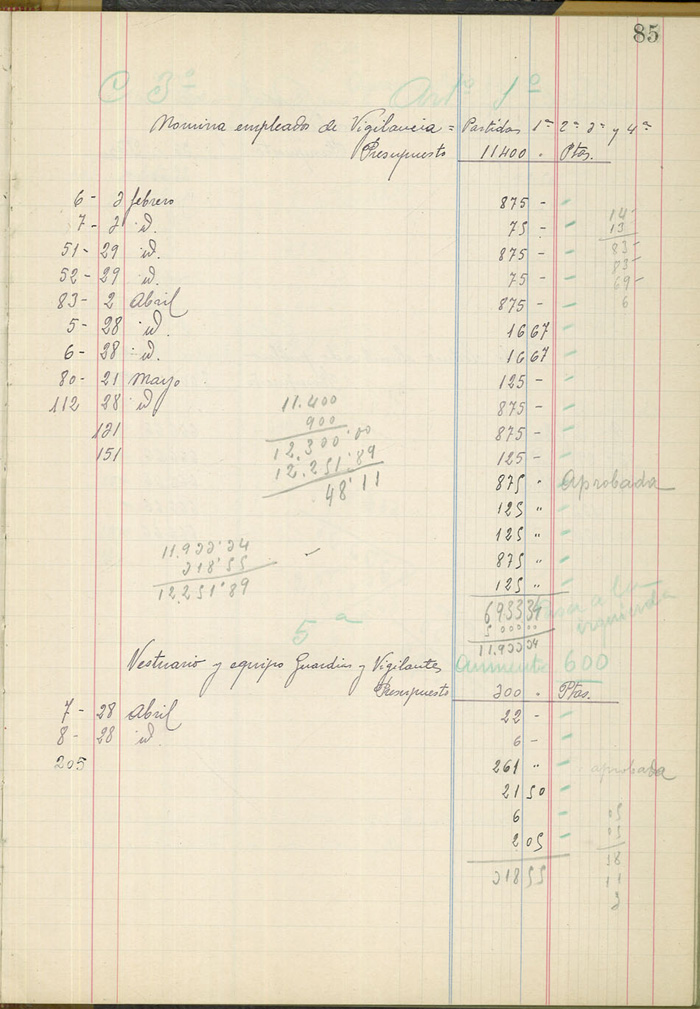 85
C 3º Artº 1º
Nomina empleados de Vigilancia = Partidas 1ª 2ª 3ª y 4ª
Presupuesto 11400 . Ptas.
6 - 3 febrero 875 -
7 - 3 id. 75 - 14-
51 - 29 id. 875 - 13
52 - 29 id. 75 - 83-
83 - 2 Abril 875 - 83-
5 - 28 id. 16 67 69-
6 - 28 id. 16 67 6
80 - 21 Mayo 125 -
112 28 id 875 -
131 875 -
151 125 -
11.400
900
12.300'00
12.251'89
48'11
875 " Aprobada
125 "
125 "
875 "
125 "
11.933'34
318'55
12.251'89
6933 34 Pasa a la
5000 00 izquierda
11.933 34
5ª
Vestuario y equipo Guardias y Vigilantes Aumento 600
Presupuesto 300 . Ptas.
7 - 28 Abril 22 -
8 - 28 id 6 -
205 261 " aprobada
21 50
6
2 05
318 55
05
03
38
11